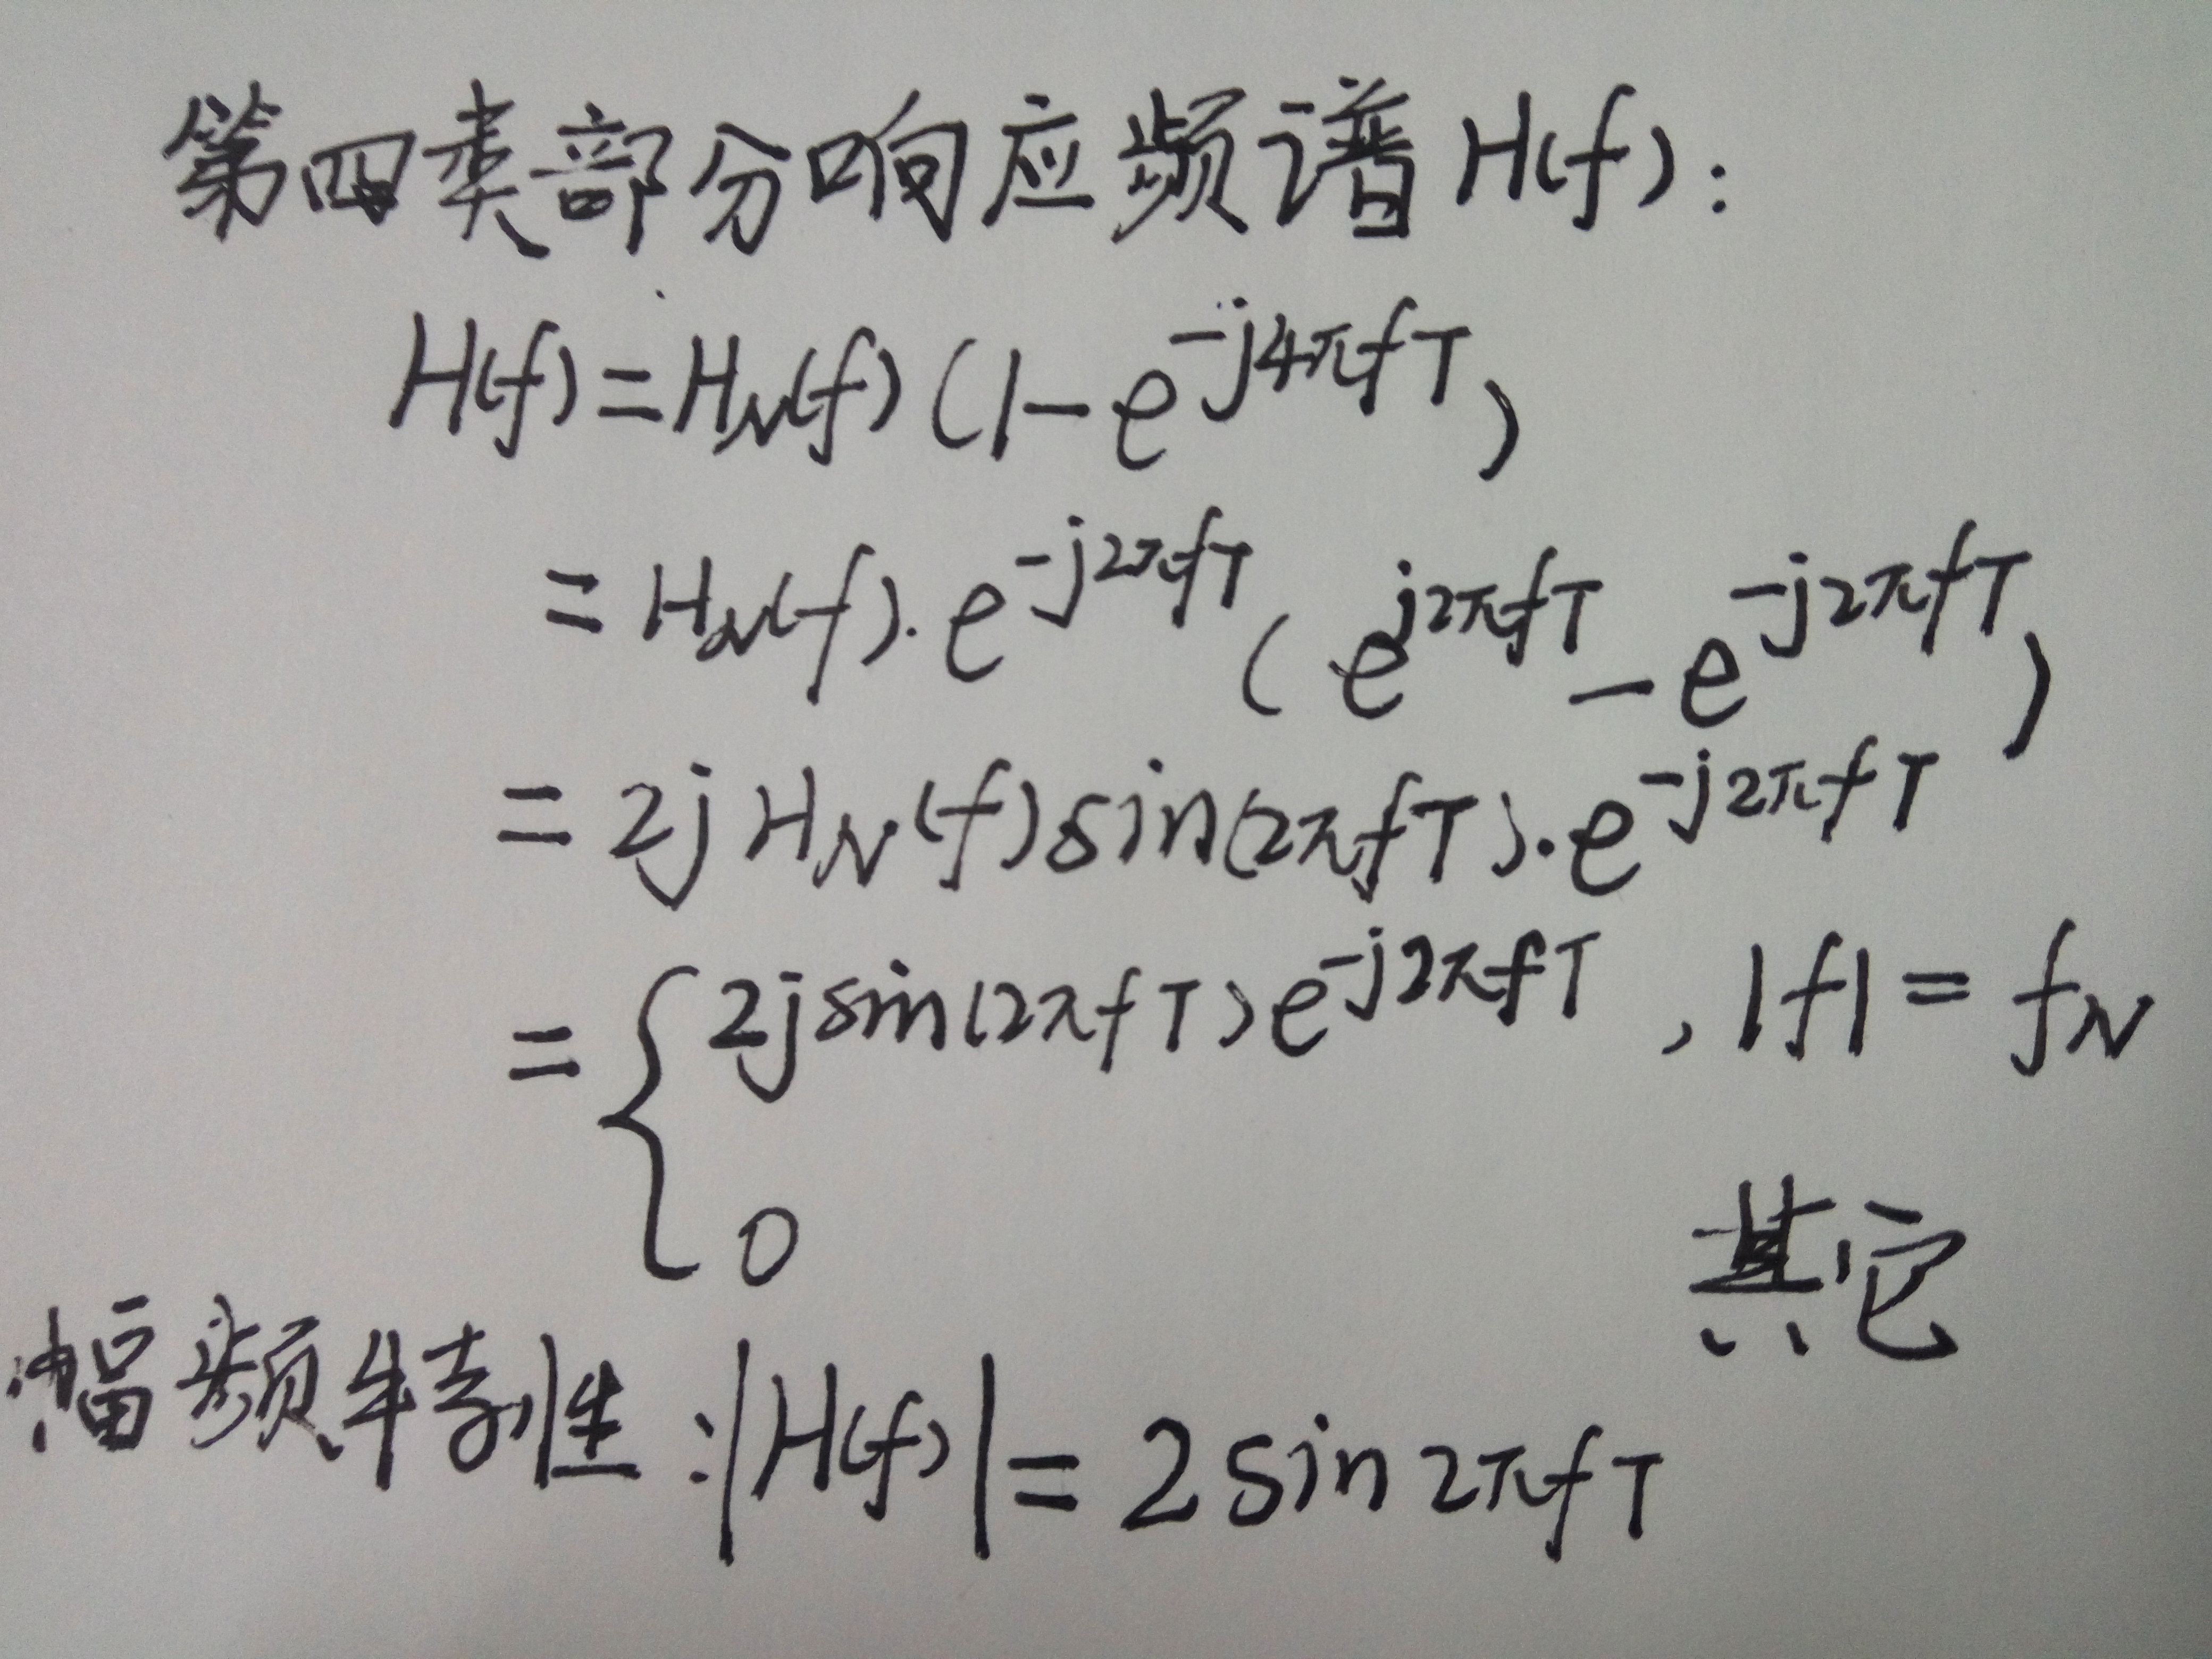 第四类部分响应频谱H(f):
H(f)=H_N(f)(1-e^{-j4πfT})
=H_N(f)·e^{-j2πfT}(e^{j2πfT}-e^{-j2πfT})
=2jH_N(f)sin(2πfT)·e^{-j2πfT}
={2jsin(2πfT)e^{-j2πfT},|f|=f_N
0 其它
幅频特性:|H(f)|=2sin2πfT